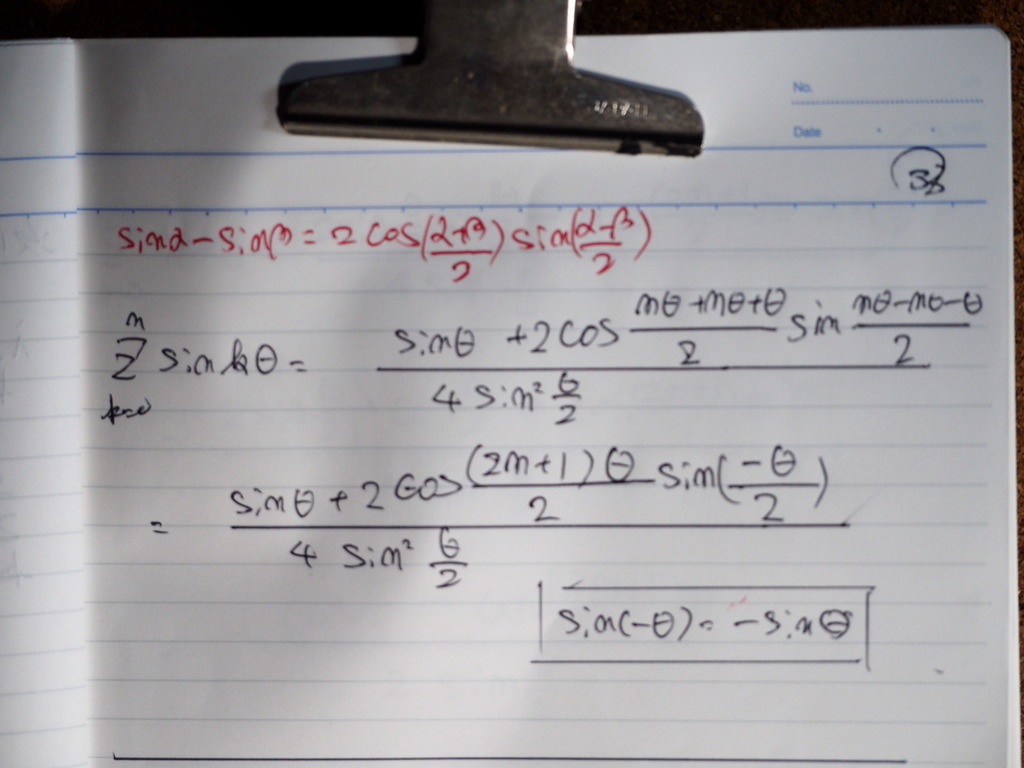 No.
Date
sinα - sinβ = 2 cos(α+β/2) sin(α-β/2)
n
Σ sin kθ = sinθ + 2 cos nθ + nθ + θ/2 sin nθ - nθ - θ/2
k=0 4 sin² θ/2
= sinθ + 2 cos (2n+1)θ/2 sin(-θ/2)
4 sin² θ/2
sin(-θ) = -sinθ